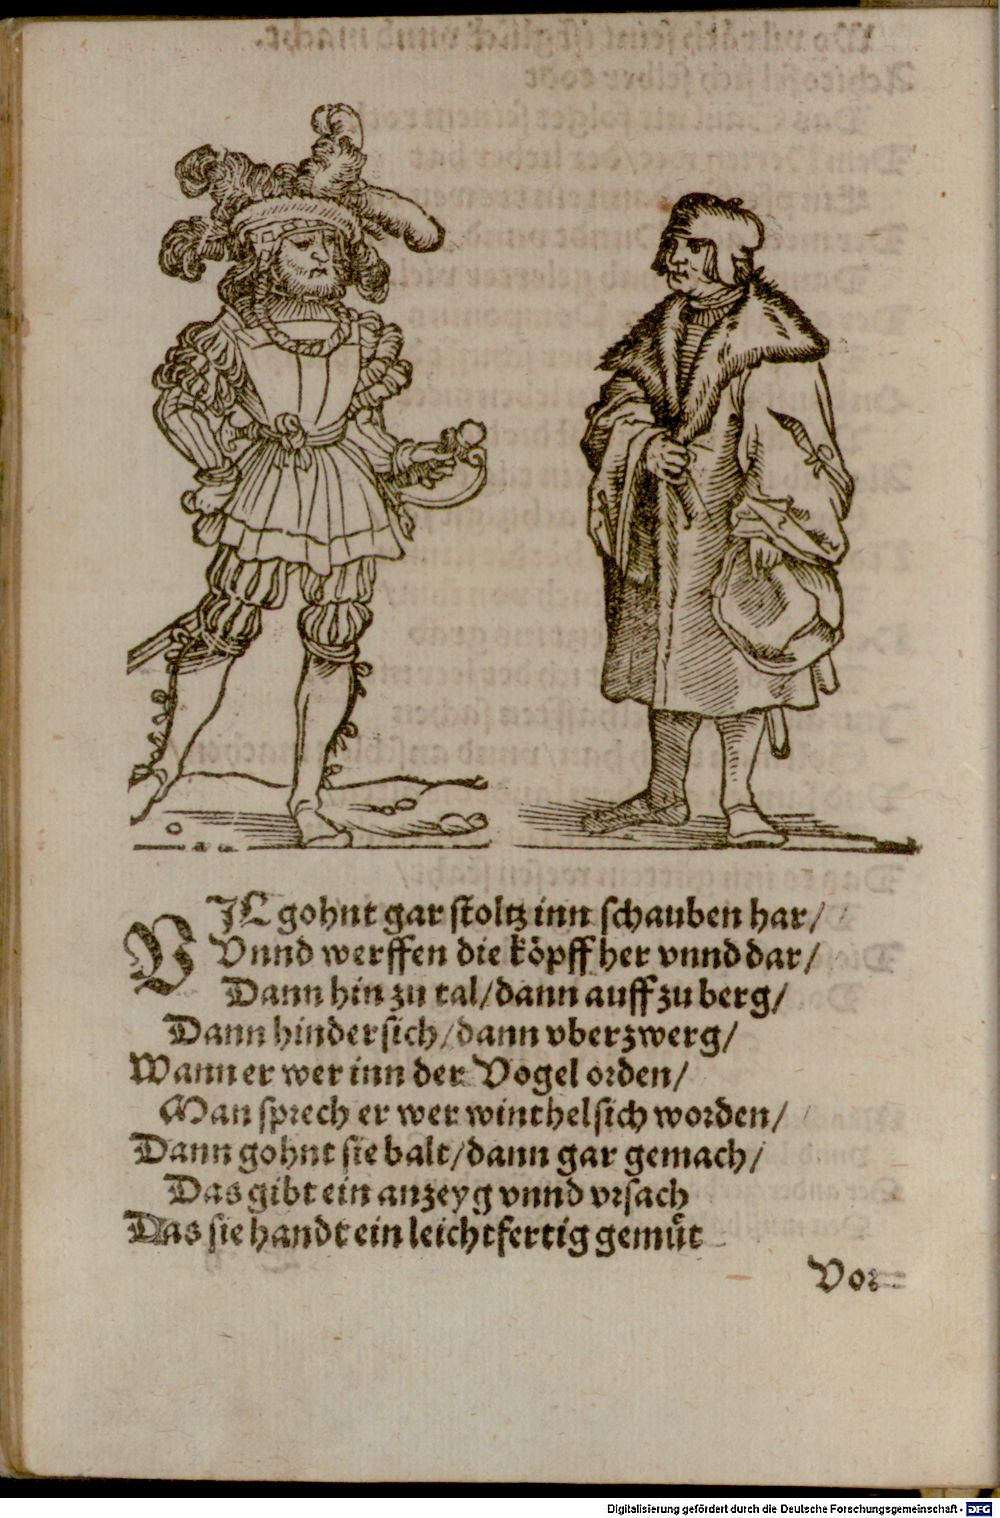 VIL gohnt gar stoltz inn schauben har/
Vnnd werffen die köpff her vnnd dar/
Dann hin zu tal/dann auff zu berg/
Dann hindersich/dann vberzwerg/
Wann er wer inn der Vogel orden/
Man sprech er wer winthelsich worden/
Dann gohnt sie balt/dann gar gemach/
Das gibt ein anzeyg vnnd vrsach
Das sie handt ein leichtfertig gemuͤt
Vor=
Digitalisierung gefördert durch die Deutsche Forschungsgemeinschaft - DFG